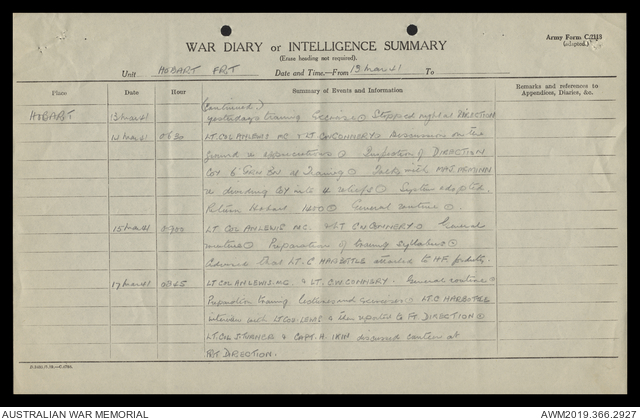 Army Form C.2118
(adapted.)
WAR DIARY or INTELLIGENCE SUMMARY
(Erase heading not required).
Unit HOBART FRT Date and Time.—From 13 Mar 41 To
Place Date Hour Summary of Events and Information Remarks and references to Appendices, Diaries, &c.
HOBART 13 Mar 41 (Continued.)
yesterdays training Exercise Stopped night at DIRECTION
14 Mar 41 0830 LT. COL A.N. LEWIS M.C. & LT. C.W. CONNERY Discussion on the
ground Inspection of DIRECTION
Coy of Training Talks with MAJ.
in dividing Coy into 4 reliefs System adopted.
Return Hobart 1400 General routine
15 Mar 41 0900 LT. COL A.N. LEWIS M.C. LT C.W. CONNERY General
routine Preparation of training syllabus
Advised that LT. C. HARBOTTLE attached to H.F.
17 Mar 41 0845 LT. COL A.N. LEWIS M.C. & LT. C.W. CONNERY. General routine
Preparation training lectures and exercises LT. C. HARBOTTLE
interview with LT COL LEWIS & then reported to FT. DIRECTION
LT. COL & CAPT. H. discussed canteen at
FT. DIRECTION.
AUSTRALIAN WAR MEMORIAL AWM2019.366.2927